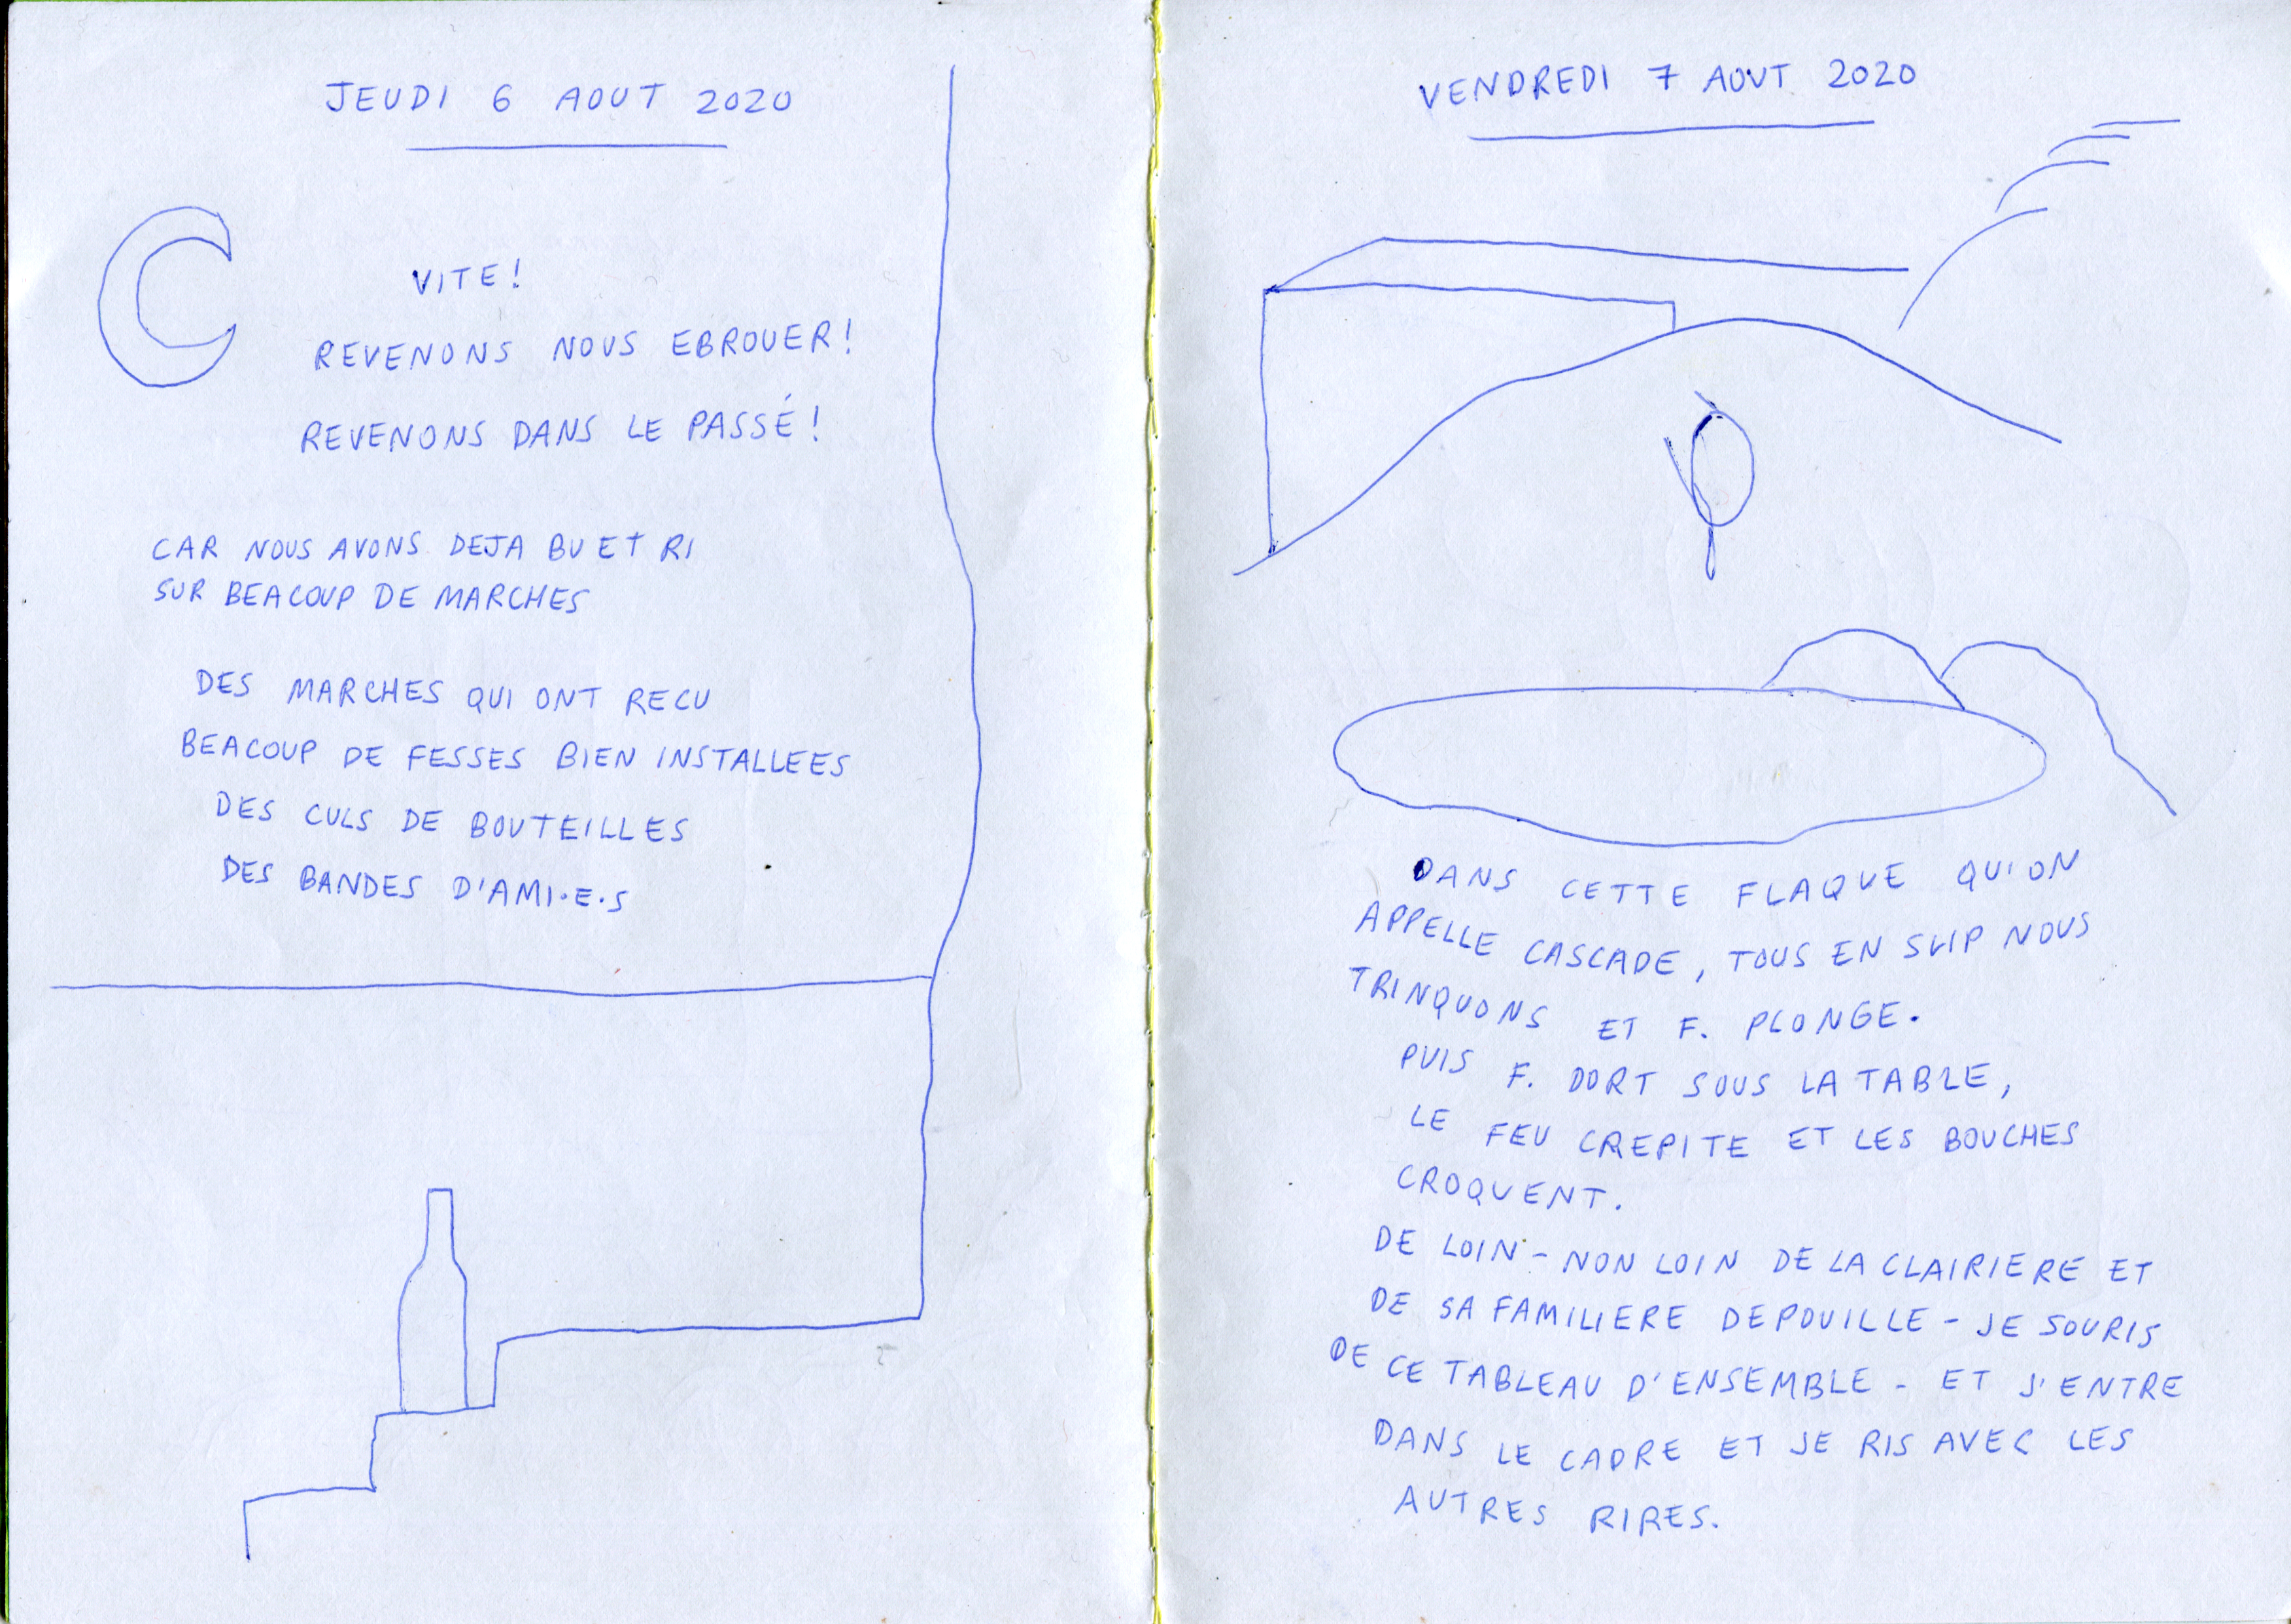 JEUDI 6 AOUT 2020
VITE!
REVENONS NOUS EBROUER!
REVENONS DANS LE PASSÉ!
CAR NOUS AVONS DEJA BU ET RI
SUR BEACOUP DE MARCHES
DES MARCHES QUI ONT RECU
BEACOUP DE FESSES BIEN INSTALLEES
DES CULS DE BOUTEILLES
DES BANDES D'AMI·E·S
VENDREDI 7 AOUT 2020
DANS CETTE FLAQUE QU'ON
APPELLE CASCADE, TOUS EN SLIP NOUS
TRINQUONS ET F. PLONGE.
PUIS F. DORT SOUS LA TABLE,
LE FEU CREPITE ET LES BOUCHES
CROQUENT.
DE LOIN - NON LOIN DE LA CLAIRIERE ET
DE SA FAMILIERE DEPOUILLE - JE SOURIS
DE CE TABLEAU D'ENSEMBLE - ET J'ENTRE
DANS LE CADRE ET JE RIS AVEC LES
AUTRES RIRES.